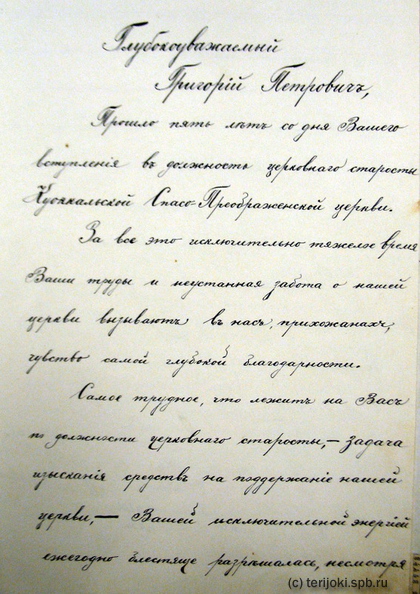 Глубокоуважаемый
Григорій Петровичъ,
Прошло пять лѣтъ со дня Вашего
вступленія въ должность церковнаго старосты
Куоккальской Спасо-Преображенской церкви.
За все это исключительно тяжелое время
Ваши труды и неустанная забота о нашей
церкви вызываютъ въ насъ, прихожанахъ,
чувство самой глубокой благодарности.
Самое трудное, что лежитъ на Васъ
по должности церковнаго старосты, – задача
изысканія средствъ на поддержаніе нашей
церкви, – Вашей исключительной энергіей
ежегодно блестяще разрѣшалась, несмотря
(c) terijoki.spb.ru